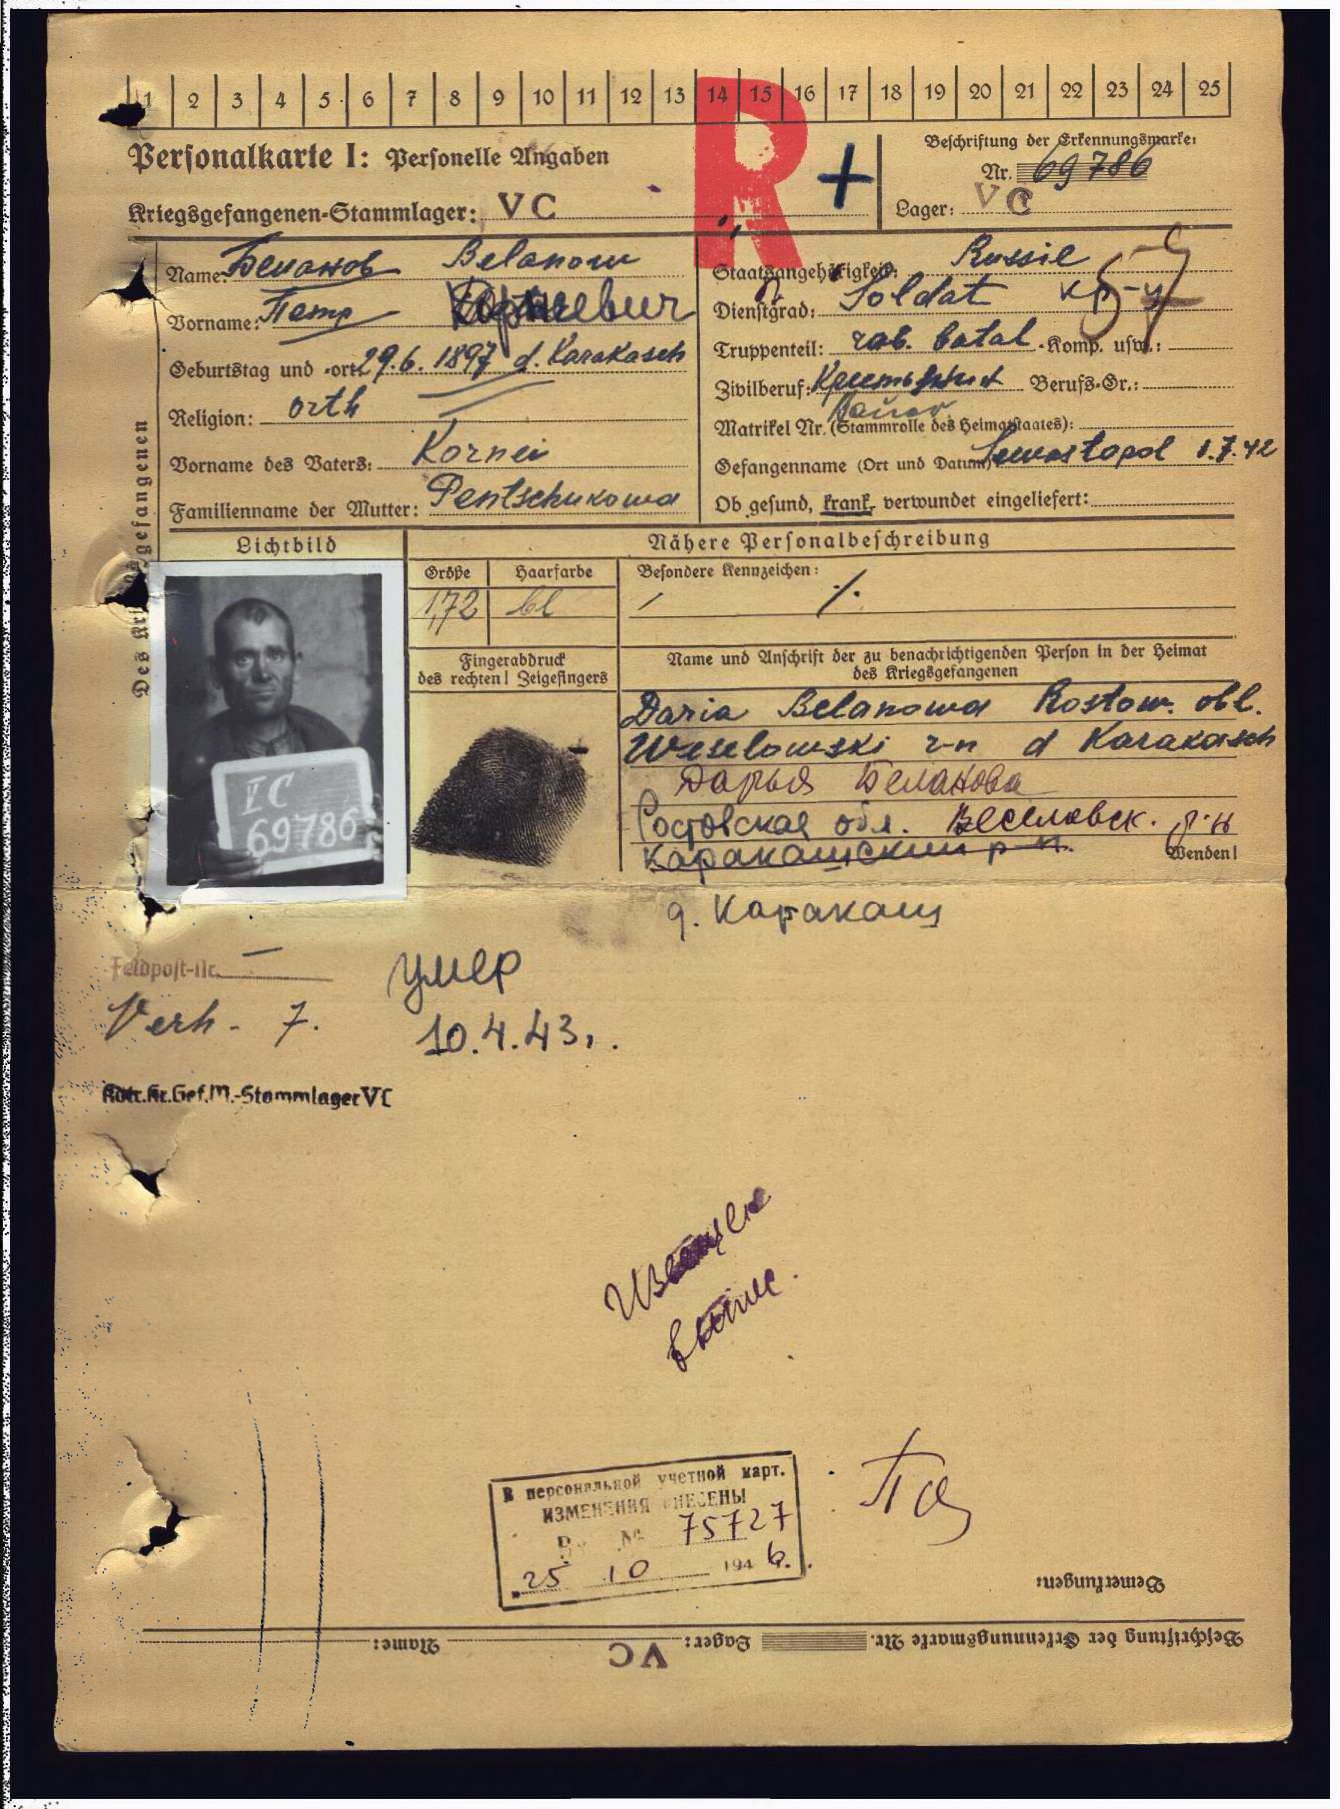 1 2 3 4 5 6 7 8 9 10 11 12 13 14 15 16 17 18 19 20 21 22 23 24 25
R
Personalkarte I: Personelle Angaben
Kriegsgefangenen-Stammlager: VC
Beschriftung der Erkennungsmarke:
Nr. 69786
Lager: VC
Des Kriegsgefangenen
Name: Беланов Belanow
Vorname: Петр Корнеевич
Geburtstag und -ort 29.6.1897 d. Karakasch
Religion: orth
Vorname des Vaters: Kornei
Familienname der Mutter: Pentschukowa
Staatsangehörigkeit: Russie
Dienstgrad: Soldat кр-ц
Truppenteil: rab. batal. Komp. usw.:
Zivilberuf: Крестьянин Berufs-Gr.:
Bauer
Matrikel Nr. (Stammrolle des Heimatstaates):
Gefangenname (Ort und Datum) Sewastopol 1.7.42
Ob gesund, krank, verwundet eingeliefert:
Lichtbild
Nähere Personalbeschreibung
Größe Haarfarbe Besondere Kennzeichen:
1,72 bl
VC
69786
Fingerabdruck
des rechten! Zeigefingers
Name und Anschrift der zu benachrichtigenden Person in der Heimat
des Kriegsgefangenen
Daria Belanowa Rostow. obl.
Weselowski r-n d Karakasch
Дарья Беланова
Ростовская обл. Веселовск. р-н
Каракашский р-н
Wenden!
д. Каракаш
Feldpost-Nr.
Verh - 7.
умер
10.4.43.
Kdtr. Kr.Gef.M.-Stammlager VC
выше.
В персональной учетной карт.
ИЗМЕНЕНИЯ ВНЕСЕНЫ
Вх № 75727
25 10 1946.
Bemerkungen:
Beschriftung der Erkennungsmarke Nr. Lager: VC Name: